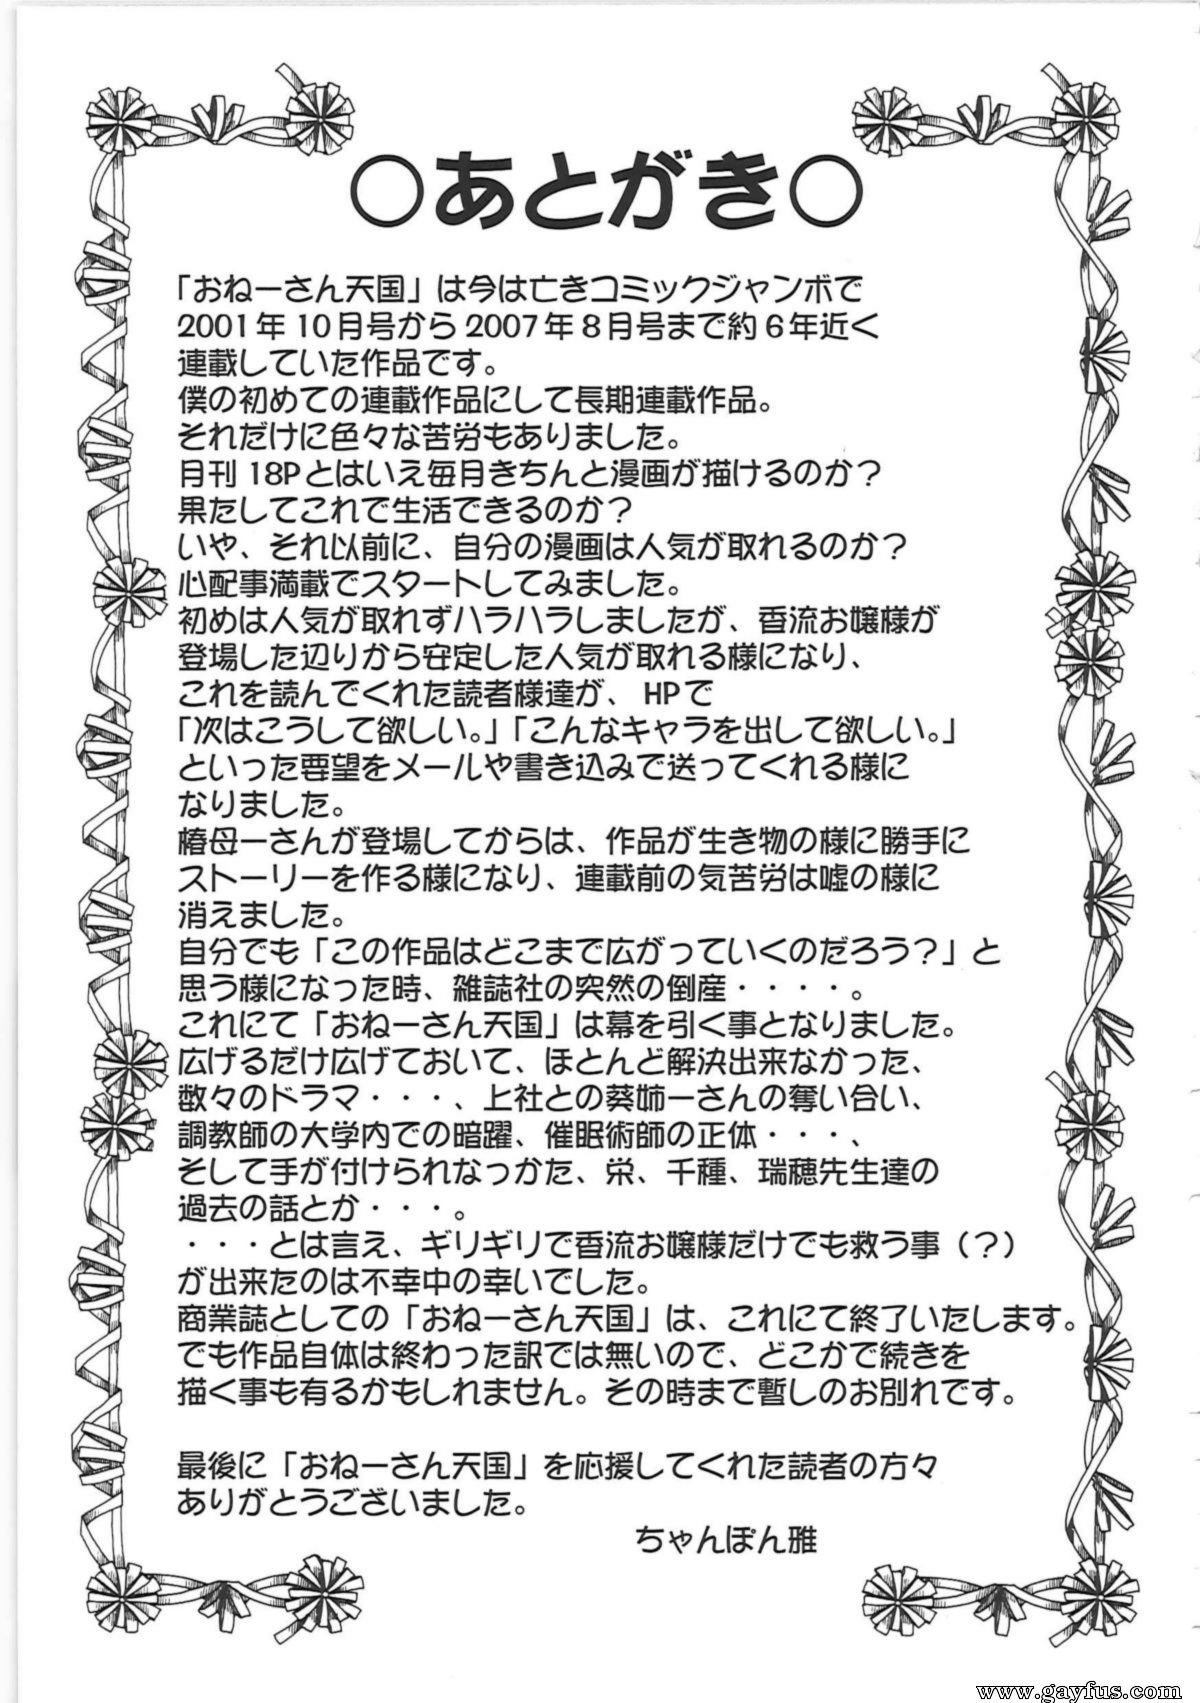 ○あとがき○
「おねーさん天国」は今は亡きコミックジャンボで
2001年10月号から2007年8月号まで約6年近く
連載していた作品です。
僕の初めての連載作品にして長期連載作品。
それだけに色々な苦労もありました。
月刊18Pとはいえ毎月きちんと漫画が描けるのか?
果たしてこれで生活できるのか?
いや、それ以前に、自分の漫画は人気が取れるのか?
心配事満載でスタートしてみました。
初めは人気が取れずハラハラしましたが、香流お嬢様が
登場した辺りから安定した人気が取れる様になり、
これを読んでくれた読者様達が、HPで
「次はこうして欲しい。」「こんなキャラを出して欲しい。」
といった要望をメールや書き込みで送ってくれる様に
なりました。
椿母ーさんが登場してからは、作品が生き物の様に勝手に
ストーリーを作る様になり、連載前の気苦労は嘘の様に
消えました。
自分でも「この作品はどこまで広がっていくのだろう?」と
思う様になった時、雑誌社の突然の倒産・・・・。
これにて「おねーさん天国」は幕を引く事となりました。
広げるだけ広げておいて、ほとんど解決出来なかった、
数々のドラマ・・・、上社との葵姉ーさんの奪い合い、
調教師の大学内での暗躍、催眠術師の正体・・・、
そして手が付けられなっかた、栄、千種、瑞穂先生達の
過去の話とか・・・。
・・・とは言え、ギリギリで香流お嬢様だけでも救う事(?)
が出来たのは不幸中の幸いでした。
商業誌としての「おねーさん天国」は、これにて終了いたします。
でも作品自体は終わった訳では無いので、どこかで続きを
描く事も有るかもしれません。その時まで暫しのお別れです。
最後に「おねーさん天国」を応援してくれた読者の方々
ありがとうございました。
ちゃんぽん雅
www.gayfus.com